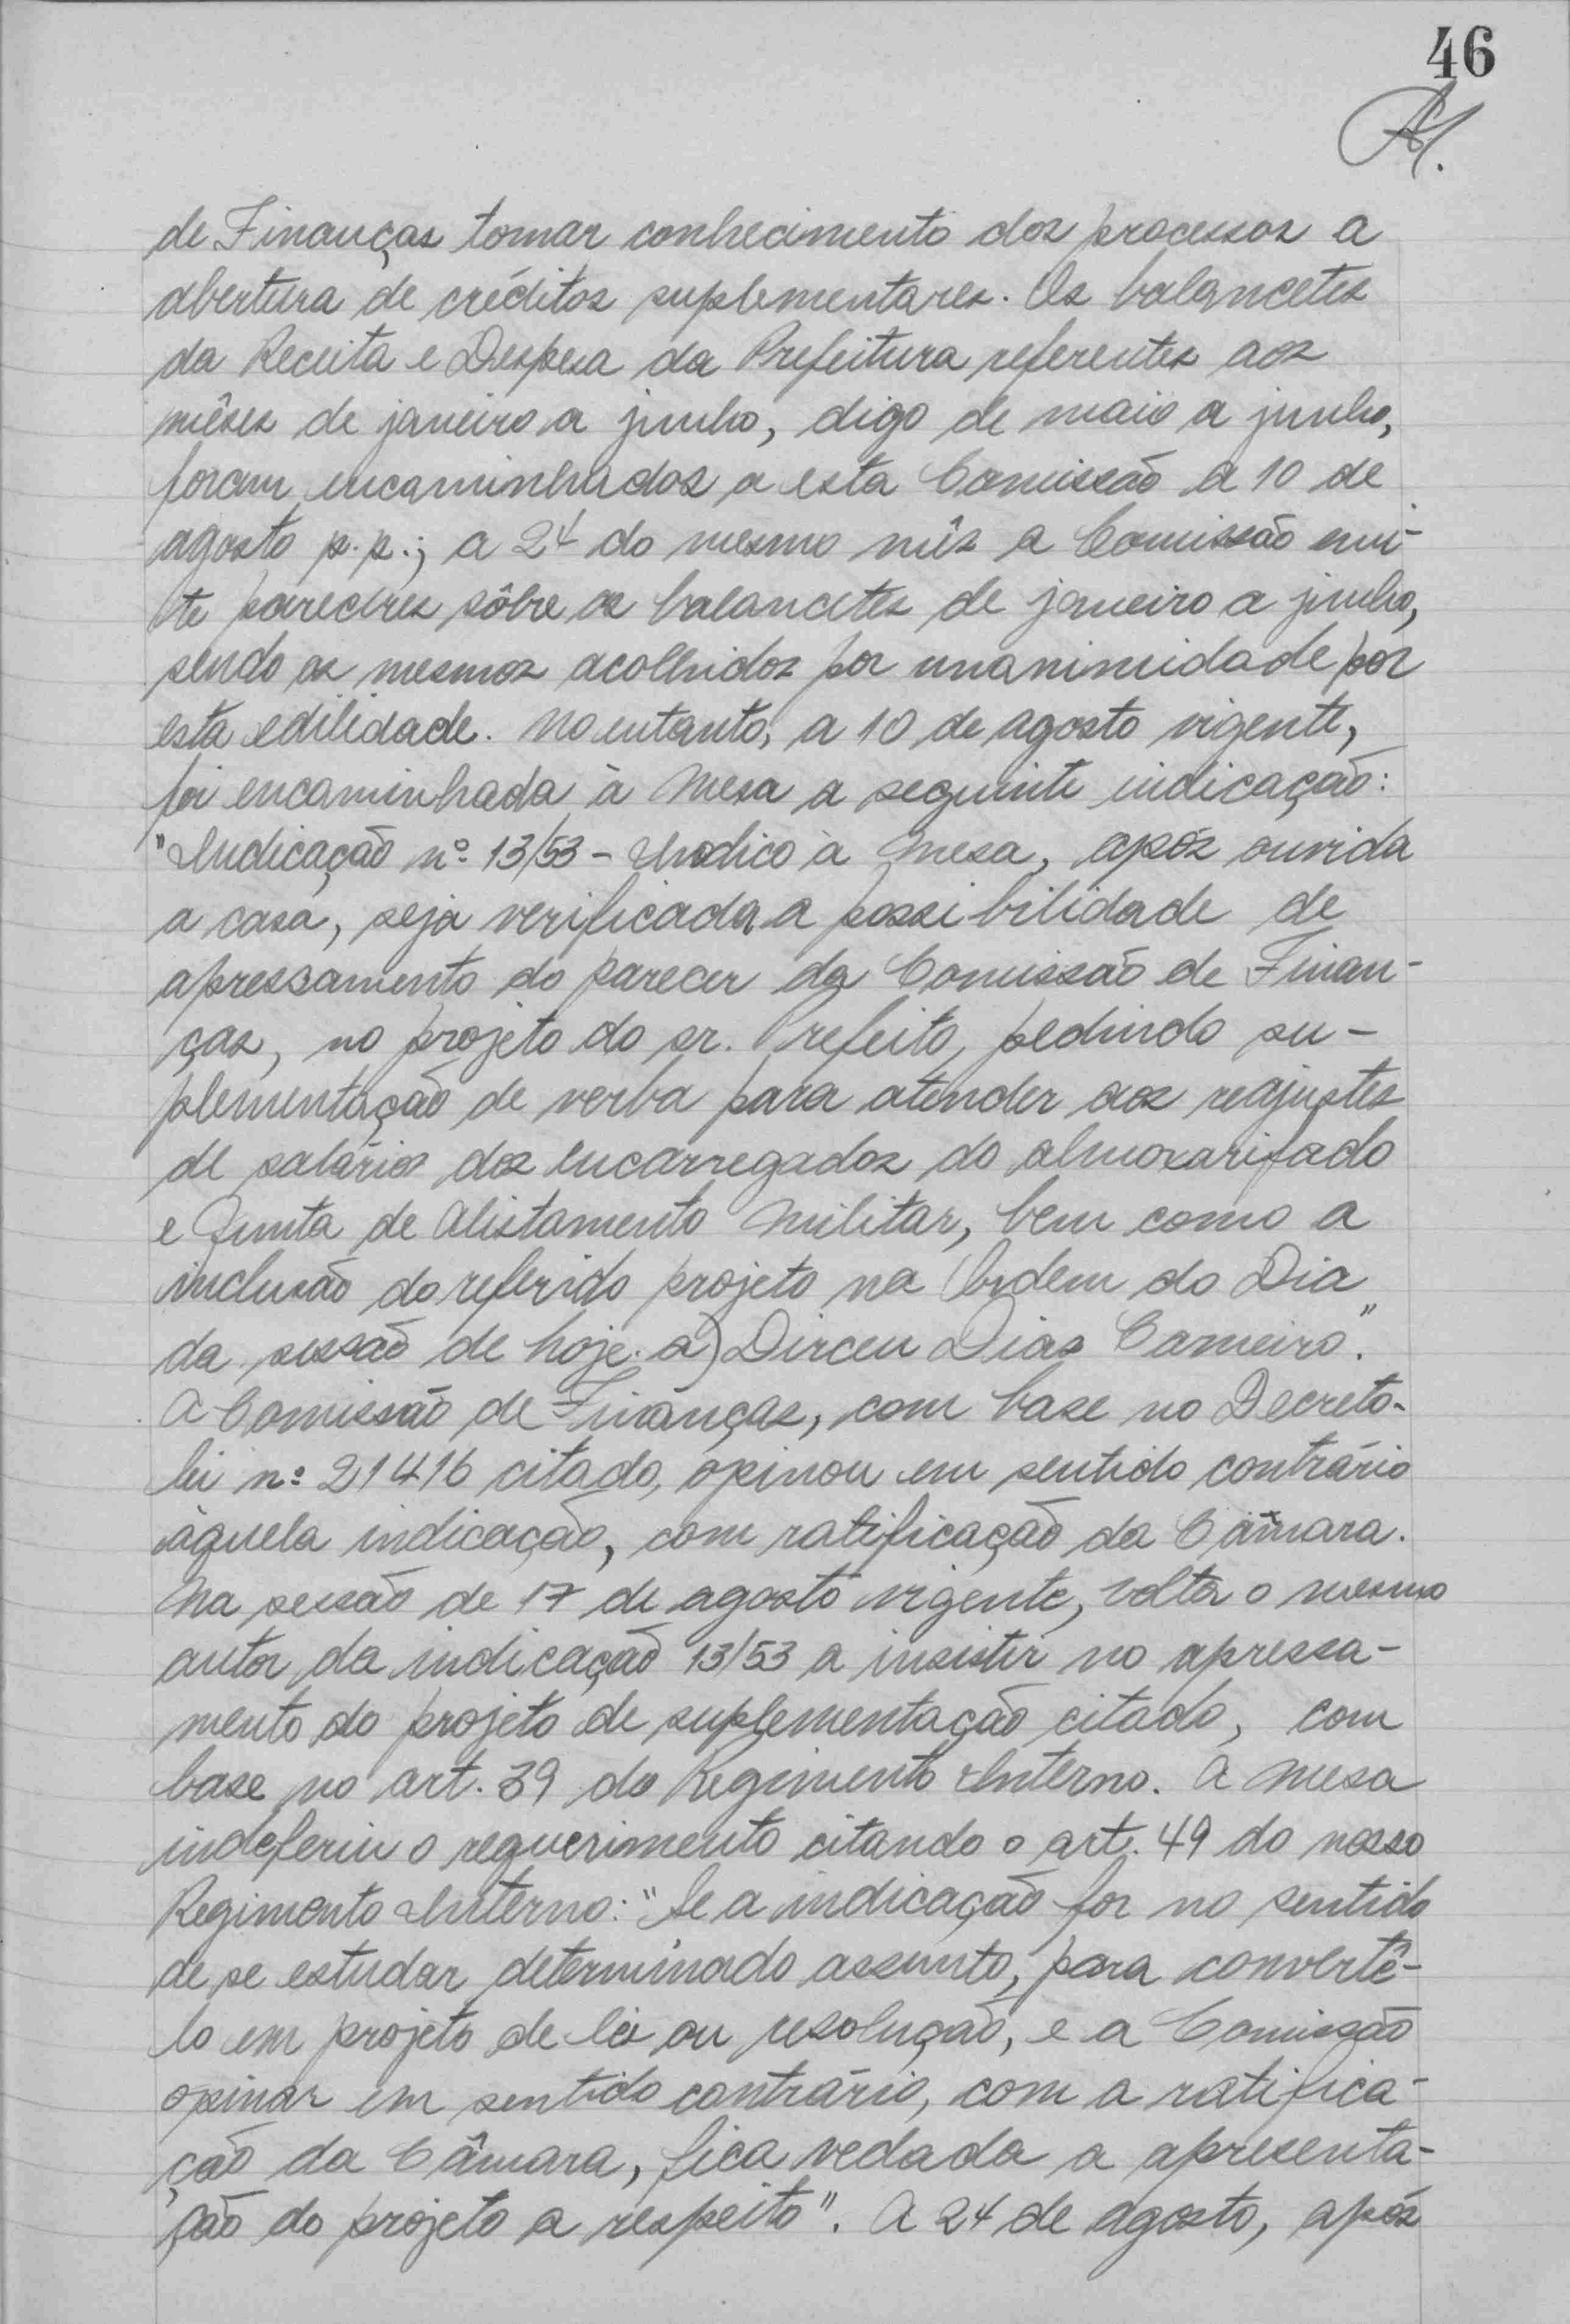 46
de Finanças tomar conhecimento dos processos a
abertura de créditos suplementares. Os balancetes
da Receita e Despesa da Prefeitura referentes aos
mêses de janeiro a junho, digo de maio a junho,
foram encaminhados a esta Comissão a 10 de
agosto p.p.; a 24 do mesmo mês a Comissão emi-
te pareceres sôbre os balancetes de janeiro a junho,
sendo os mesmos acolhidos por unanimidade por
esta edilidade. No entanto, a 10 de agosto vigente,
foi encaminhada à Mesa a seguinte indicação:
"Indicação nº 13/53 - Indico à Mesa, após ouvida
a casa, seja verificada a possibilidade de
apressamento do parecer da Comissão de Finan-
ças, no projeto do sr. Prefeito, pedindo su-
plementação de verba para atender aos reajustes
de salários dos encarregados do almoxarifado
e Junta de Alistamento Militar, bem como a
inclusão do referido projeto na Ordem do Dia
da sessão de hoje. a) Dirceu Dias Carneiro".
A Comissão de Finanças, com base no Decreto-
lei nº 21416 citado, opinou em sentido contrário
àquela indicação, com ratificação da Câmara.
Na sessão de 17 de agosto vigente, volta o mesmo
autor da indicação 13/53 a insistir no apressa-
mento do projeto de suplementação citado, com
base no art. 39 do Regimento Interno. A Mesa
indeferiu o requerimento citando o art. 49 do nosso
Regimento Interno: "Se a indicação for no sentido
de se estudar determinado assunto, para convertê-
lo em projeto de lei ou resolução, e a Comissão
opinar em sentido contrário, com a ratifica-
ção da Câmara, fica vedada a apresenta-
ção do projeto a respeito". A 24 de agosto, após